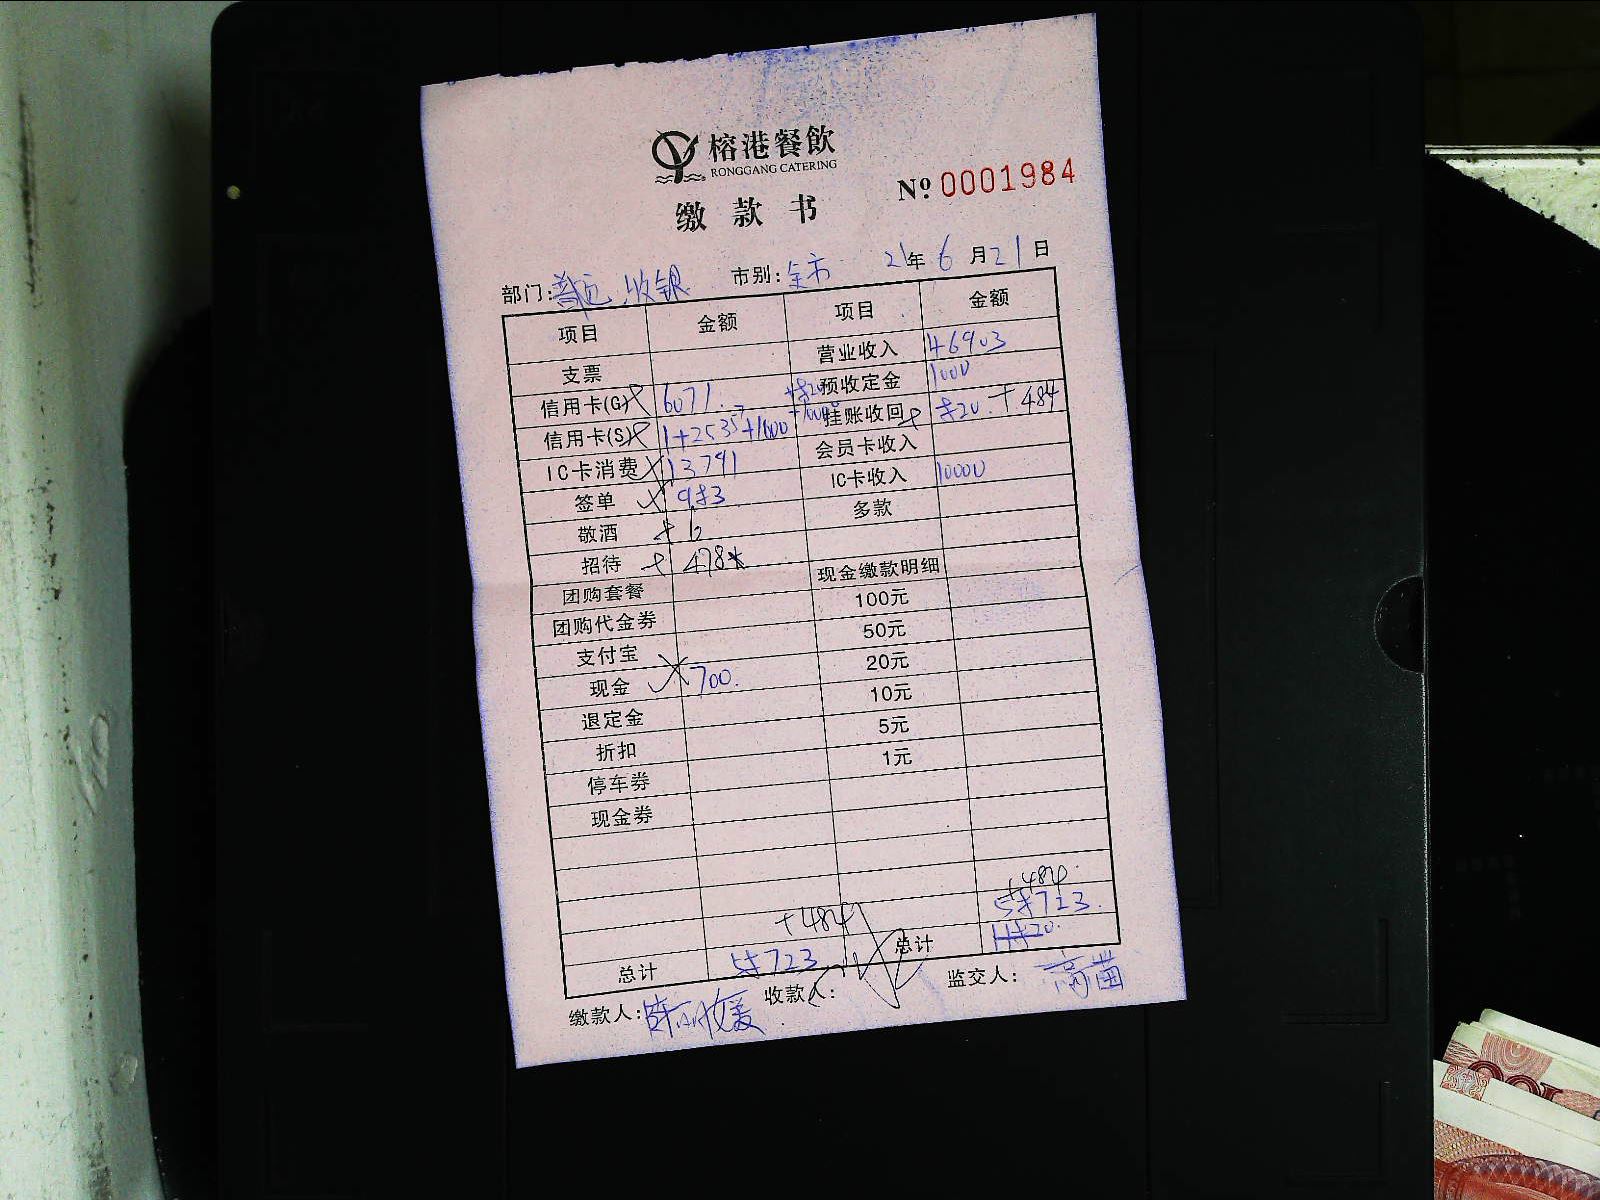 榕港餐飲
RONGGANG CATERING
№ 0001984
缴款书
部门: 收银 市别: 全市 21年6月21日
项目 金额 项目 金额
支票 营业收入 46903
信用卡(G) 6071. 预收定金 1000
信用卡(S) 挂账收回 +484
IC卡消费 13791 会员卡收入
签单 IC卡收入 10000
敬酒 6 多款
招待 478
团购套餐 现金缴款明细
团购代金券 100元
支付宝 50元
现金 700. 20元
退定金 10元
折扣 5元
停车券 1元
现金券
+484 +484
总计 总计
缴款人: 收款人: 监交人: 高苗